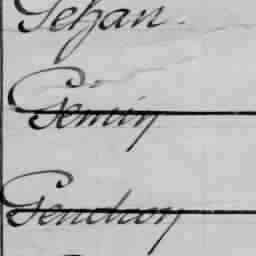 Gehan.
Gemin
Gendron